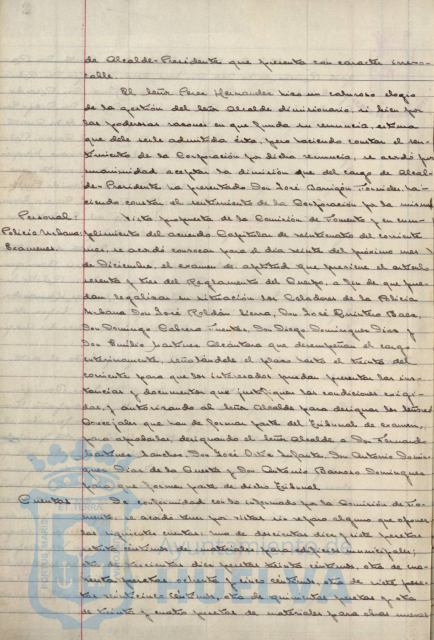 de Alcalde-Presidente que presenta con caracter irrevo-
cable.
El señor Perez Hernandez hizo un caluroso elogio
de la gestión del señor Alcalde dimisionario, si bien por
las poderosas razones en que funda su renuncia, estima
que debe serle admitida ésta, pero haciendo constar el sen-
timiento de la Corporación por dicha renuncia, se acordó por
unanimidad aceptar la dimisión que del cargo de Alcal-
de-Presidente ha presentado Don José Barrigón Fornieles, ha-
ciendo constar el sentimiento de la Corporación por la misma
Personal:
Policia Urbana:
Examenes.
Vista propuesta de la Comisión de Fomento y en cum-
plimiento del acuerdo Capitular de veintenato del corriente
mes, se acordó convocar para el día veinte del próximo mes
de Diciembre, el examen de aptitud que previene el artículo
sesenta y tres del Reglamento del Cuerpo, a fin de que pue-
dan legalizar su situación los Celadores de la Policia
Urbana Don José Roldán Sierra, Don José Quintero Baez,
Don Domingo Cabera Fuentes, Don Diego Dominguez Diaz y
Don Emilio Martinez Alcántara que desempeñan el cargo
interinamente, señalándole el plazo hasta el treinta del
corriente para que los interesados puedan presentar las ins-
tancias y documentos que justifiquen las condiciones exigi-
das, y autorizando al señor Alcalde para designar los señores
Concejales que han de formar parte del Tribunal de examen,
para aprobarlas, designando el señor Alcalde a Don Fernando
Martinez Sanchez Don José Ortiz Infante, Don Antonio Domin-
guez Diaz de la Cuesta y Don Antonio Barroso Dominguez
para que formen parte de dicho Tribunal.
Cuentas
De conformidad con lo informado por la Comisión de Fo-
mento, se acordó tener por vistas sin reparo alguno que oponer
las siguientes cuentas: una de doscientas diez y siete pesetas
céntimos, materiales para edificios municipales;
otra de doscientas diez pesetas treinta céntimos, otra de cua-
renta pesetas ochenta y cinco céntimos, otra de siete pese-
tas veinticinco céntimos, otra de quinientas pesetas y otra
de treinta y cuatro pesetas de materiales para obras menores
Ayuntamiento de
HUELVA
PORTUS MARIS ET TERRAE